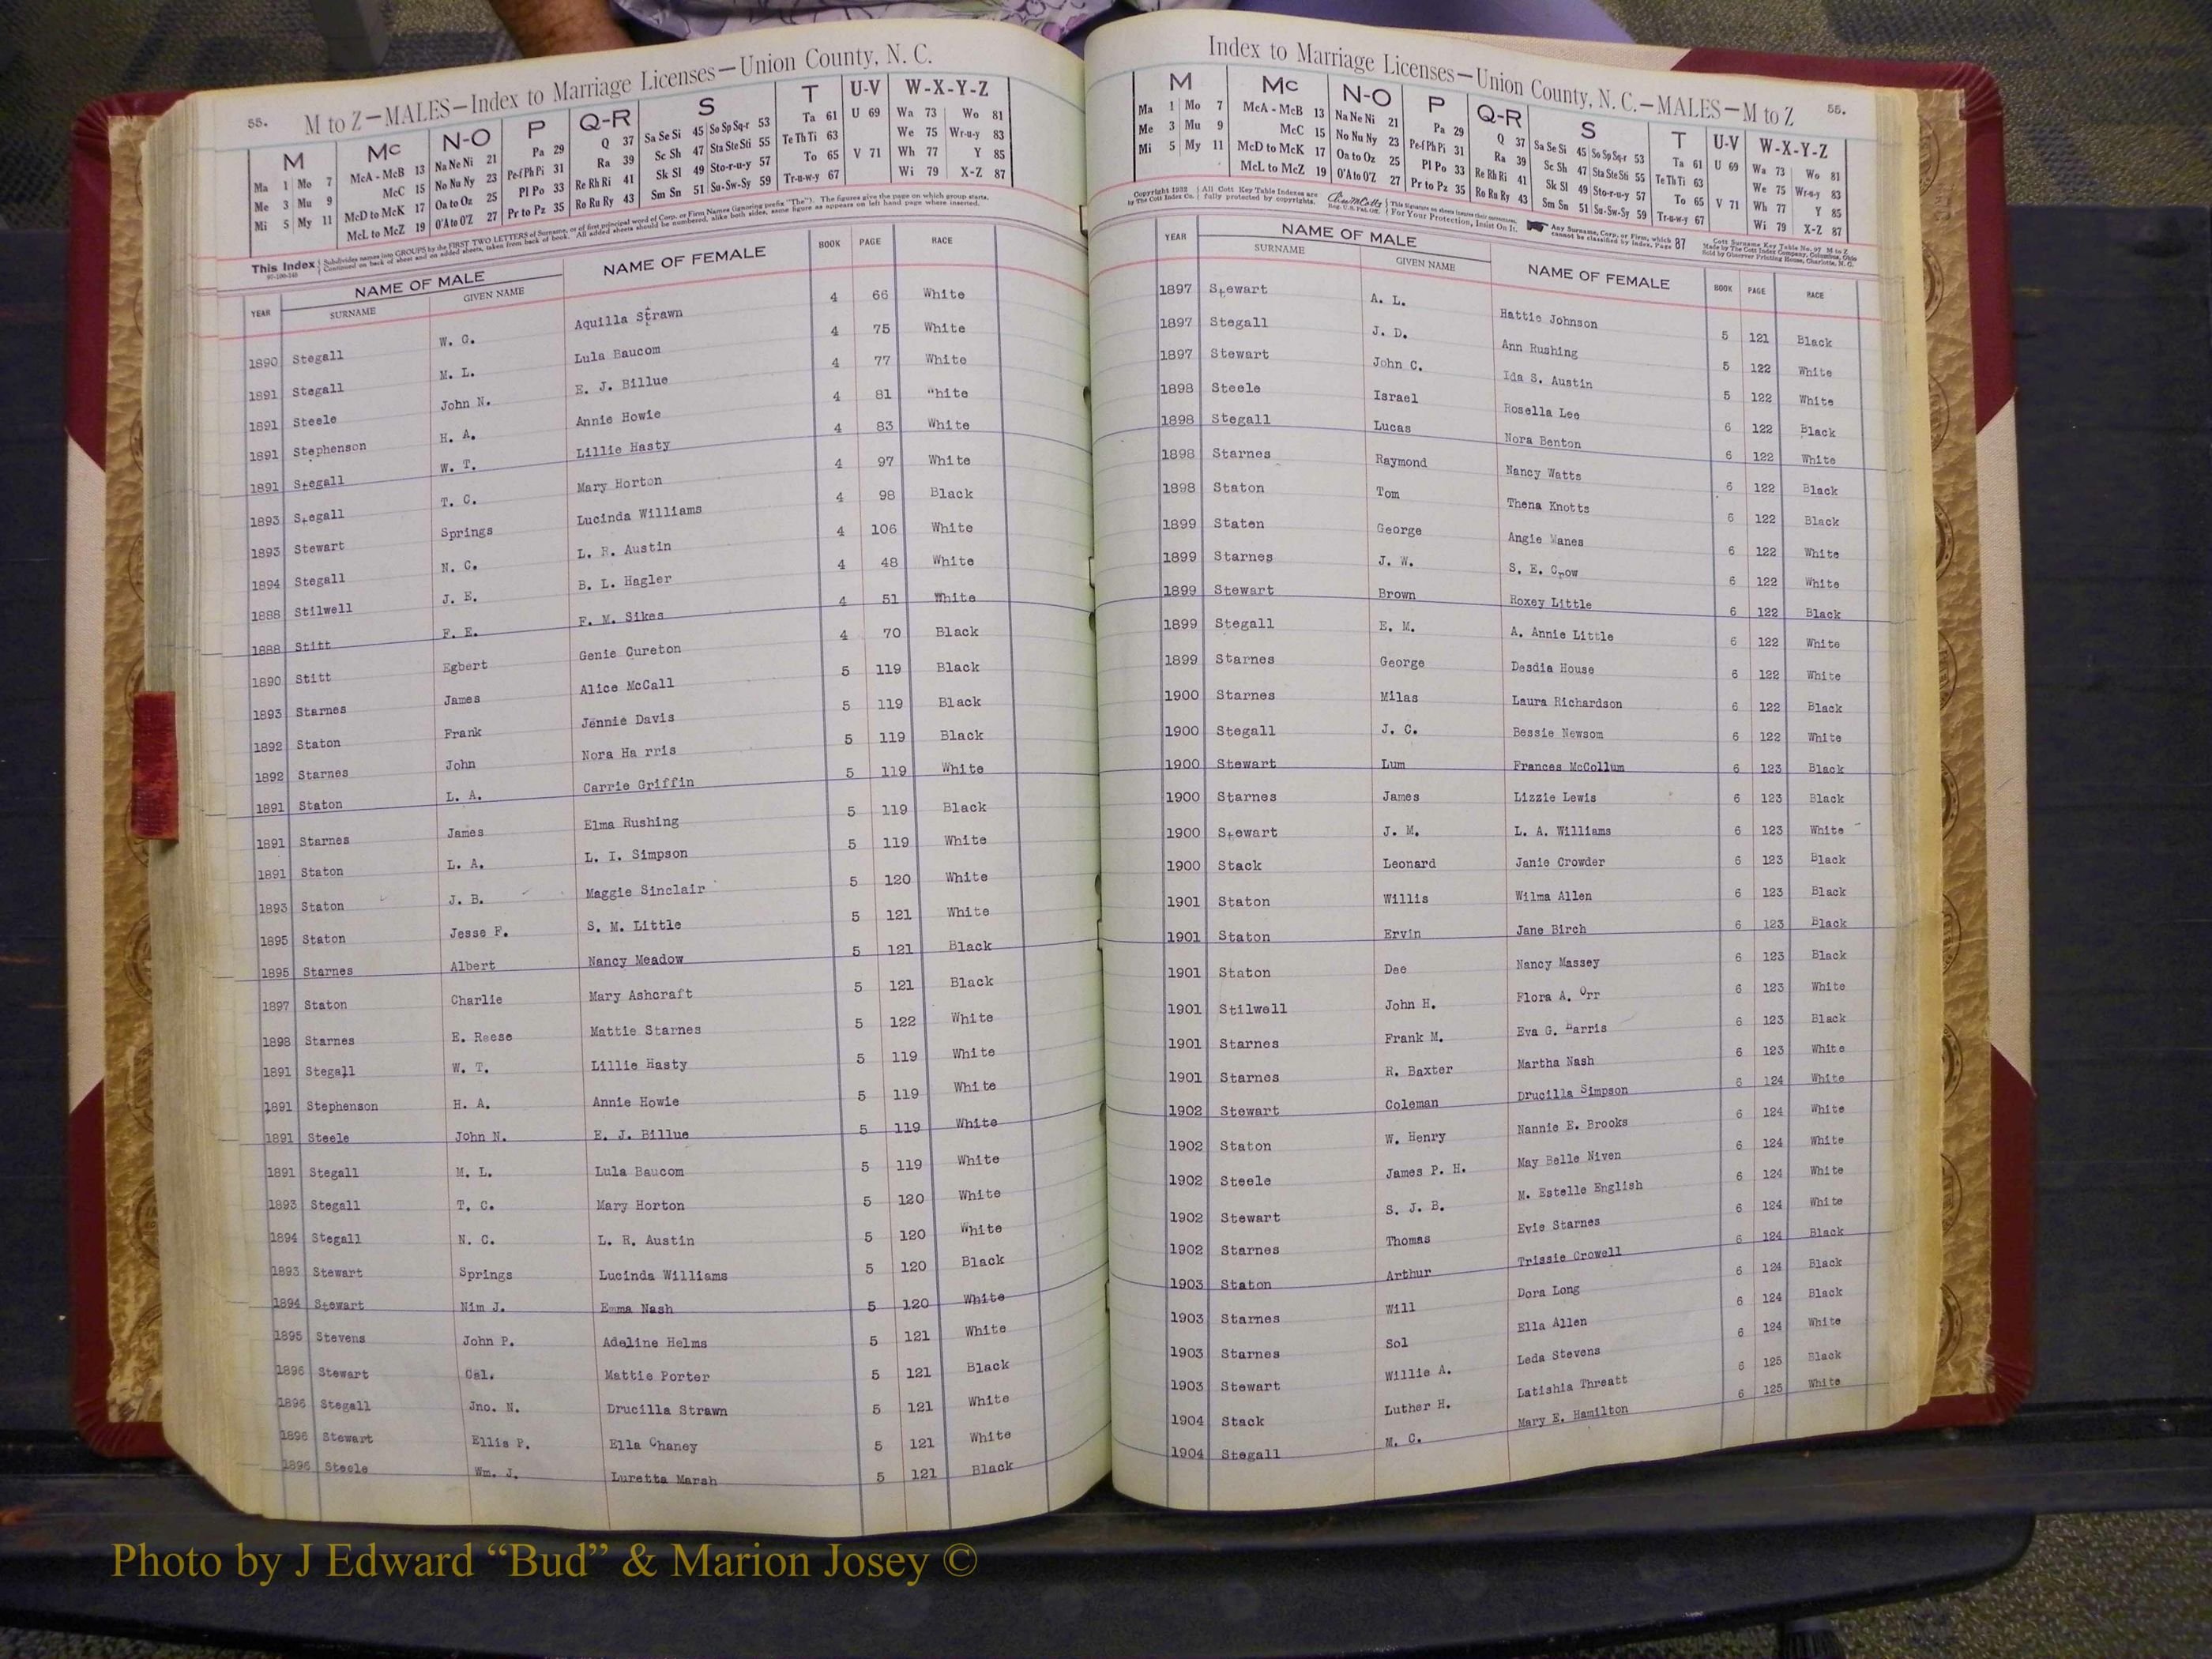 55. M to Z—MALES—Index to Marriage Licenses—Union County, N. C.
M Mc N-O P Q-R S T U-V W-X-Y-Z
Ma 1 Mo 7 McA - McB 13 Na Ne Ni 21 Pa 29 Q 37 Sa Se Si 45 So Sp Sq-r 53 Ta 61 U 69 Wa 73 Wo 81
Me 3 Mu 9 McC 15 No Nu Ny 23 Pe-f Ph Pi 31 Ra 39 Sc Sh 47 Sta Ste Sti 55 Te Th Ti 63 We 75 Wr-u-y 83
Mi 5 My 11 McD to McK 17 Oa to Oz 25 Pl Po 33 Re Rh Ri 41 Sk Sl 49 Sto-r-u-y 57 To 65 V 71 Wh 77 Y 85
McL to McZ 19 O'A to O'Z 27 Pr to Pz 35 Ro Ru Ry 43 Sm Sn 51 Su-Sw-Sy 59 Tr-u-w-y 67 Wi 79 X-Z 87
This Index Subdivides names into GROUPS by the FIRST TWO LETTERS of Surname, or of first principal word of Corp. or Firm Names (ignoring prefix "The"). The figures give the page on which group starts.
Continued on back of sheet and on added sheets, taken from back of book. All added sheets should be numbered, alike both sides, same figure as appears on left hand page where inserted.
YEAR NAME OF MALE SURNAME GIVEN NAME NAME OF FEMALE BOOK PAGE RACE
1890 Stegall W. G. Aquilla Strawn 4 66 White
1891 Stegall M. L. Lula Baucom 4 75 White
1891 Steele John N. E. J. Billue 4 77 White
1891 Stephenson H. A. Annie Howie 4 81 "hite
1891 Stegall W. T. Lillie Hasty 4 83 White
1893 Stegall T. C. Mary Horton 4 97 White
1893 Stewart Springs Lucinda Williams 4 98 Black
1894 Stegall N. C. L. R. Austin 4 106 White
1888 Stilwell J. E. B. L. Hagler 4 48 White
1888 Stitt F. E. F. M. Sikes 4 51 White
1890 Stitt Egbert Genie Cureton 4 70 Black
1893 Starnes James Alice McCall 5 119 Black
1892 Staton Frank Jennie Davis 5 119 Black
1892 Starnes John Nora Ha rris 5 119 Black
1891 Staton L. A. Carrie Griffin 5 119 White
1891 Starnes James Elma Rushing 5 119 Black
1891 Staton L. A. L. I. Simpson 5 119 White
1893 Staton J. B. Maggie Sinclair 5 120 White
1895 Staton Jesse F. S. M. Little 5 121 White
1895 Starnes Albert Nancy Meadow 5 121 Black
1897 Staton Charlie Mary Ashcraft 5 121 Black
1898 Starnes E. Reese Mattie Starnes 5 122 White
1891 Stegall W. T. Lillie Hasty 5 119 White
1891 Stephenson H. A. Annie Howie 5 119 White
1891 Steele John N. E. J. Billue 5 119 White
1891 Stegall M. L. Lula Baucom 5 119 White
1893 Stegall T. C. Mary Horton 5 120 White
1894 Stegall N. C. L. R. Austin 5 120 White
1893 Stewart Springs Lucinda Williams 5 120 Black
1894 Stewart Nim J. Emma Nash 5 120 White
1895 Stevens John P. Adeline Helms 5 121 White
1896 Stewart Cal. Mattie Porter 5 121 Black
1896 Stegall Jno. N. Drucilla Strawn 5 121 White
1896 Stewart Ellis P. Ella Chaney 5 121 White
1896 Steele Wm. J. Luretta Marsh 5 121 Black
Index to Marriage Licenses—Union County, N. C.—MALES—M to Z 55.
M Mc N-O P Q-R S T U-V W-X-Y-Z
Ma 1 Mo 7 McA - McB 13 Na Ne Ni 21 Pa 29 Q 37 Sa Se Si 45 So Sp Sq-r 53 Ta 61 U 69 Wa 73 Wo 81
Me 3 Mu 9 McC 15 No Nu Ny 23 Pe-f Ph Pi 31 Ra 39 Sc Sh 47 Sta Ste Sti 55 Te Th Ti 63 We 75 Wr-u-y 83
Mi 5 My 11 McD to McK 17 Oa to Oz 25 Pl Po 33 Re Rh Ri 41 Sk Sl 49 Sto-r-u-y 57 To 65 V 71 Wh 77 Y 85
McL to McZ 19 O'A to O'Z 27 Pr to Pz 35 Ro Ru Ry 43 Sm Sn 51 Su-Sw-Sy 59 Tr-u-w-y 67 Wi 79 X-Z 87
Copyright 1932 by The Cott Index Co. All Cott Key Table Indexes are fully protected by copyrights. For Your Protection, Insist On It. Any Surname, Corp. or Firm, which cannot be classified by Index, Page 87
Cott Surname Key Table No. 97 M to Z Made by The Cott Index Company, Columbus, Ohio Sold by Observer Printing House, Charlotte, N. C.
YEAR NAME OF MALE SURNAME GIVEN NAME NAME OF FEMALE BOOK PAGE RACE
1897 Stewart A. L. Hattie Johnson 5 121 Black
1897 Stegall J. D. Ann Rushing 5 122 White
1897 Stewart John C. Ida S. Austin 5 122 White
1898 Steele Israel Rosella Lee 6 122 Black
1898 Stegall Lucas Nora Benton 6 122 White
1898 Starnes Raymond Nancy Watts 6 122 Black
1898 Staton Tom Thena Knotts 6 122 Black
1899 Staten George Angie Manes 6 122 White
1899 Starnes J. W. S. E. Crow 6 122 White
1899 Stewart Brown Roxey Little 6 122 Black
1899 Stegall E. M. A. Annie Little 6 122 White
1899 Starnes George Desdia House 6 122 White
1900 Starnes Milas Laura Richardson 6 122 Black
1900 Stegall J. C. Bessie Newsom 6 122 White
1900 Stewart Lum Frances McCollum 6 123 Black
1900 Starnes James Lizzie Lewis 6 123 Black
1900 Stewart J. M. L. A. Williams 6 123 White
1900 Stack Leonard Janie Crowder 6 123 Black
1901 Staton Willis Wilma Allen 6 123 Black
1901 Staton Ervin Jane Birch 6 123 Black
1901 Staton Dee Nancy Massey 6 123 Black
1901 Stilwell John H. Flora A. Orr 6 123 White
1901 Starnes Frank M. Eva G. Harris 6 123 Black
1901 Starnes R. Baxter Martha Nash 6 123 White
1902 Stewart Coleman Drucilla Simpson 6 124 White
1902 Staton W. Henry Nannie E. Brooks 6 124 White
1902 Steele James P. H. May Belle Niven 6 124 White
1902 Stewart S. J. B. M. Estelle English 6 124 White
1902 Starnes Thomas Evie Starnes 6 124 White
1903 Staton Arthur Trissie Crowell 6 124 Black
1903 Starnes Will Dora Long 6 124 Black
1903 Starnes Sol Ella Allen 6 124 Black
1903 Stewart Willie A. Leda Stevens 6 124 White
1904 Stack Luther H. Latishia Threatt 6 125 Black
1904 Stegall M. C. Mary E. Hamilton 6 125 White
Photo by J Edward “Bud” & Marion Josey ©